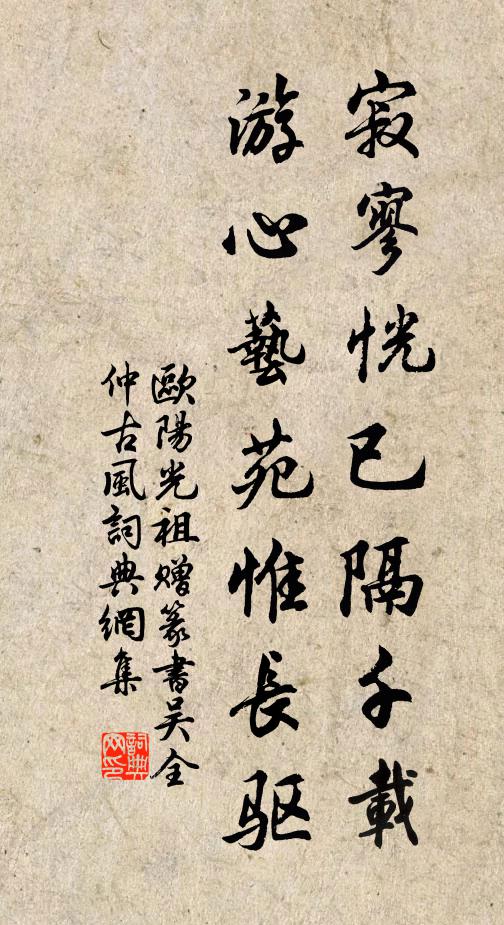 寂寥恍已隔千載
游心藝苑惟長驱
歐陽光祖赠篆書吴全
仲古風詞典網集
詞典
网印